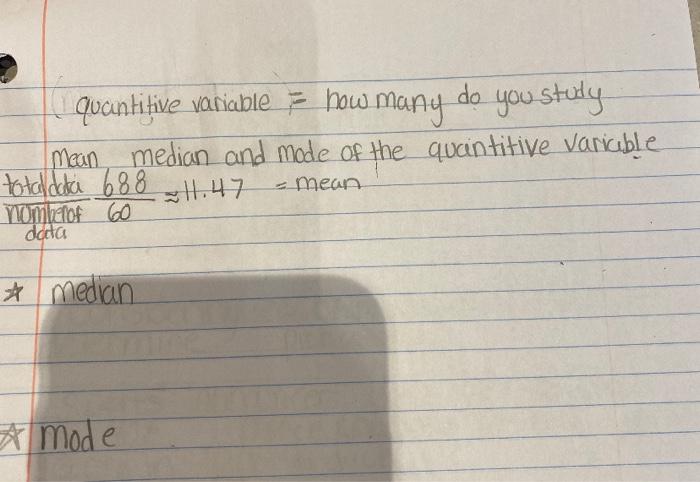 quantitive variable = how many do you study
mean median and mode of the quantitive variable
total data 688 ≈ 11.47 = mean
number of 60
data
☆ median
☆ mode